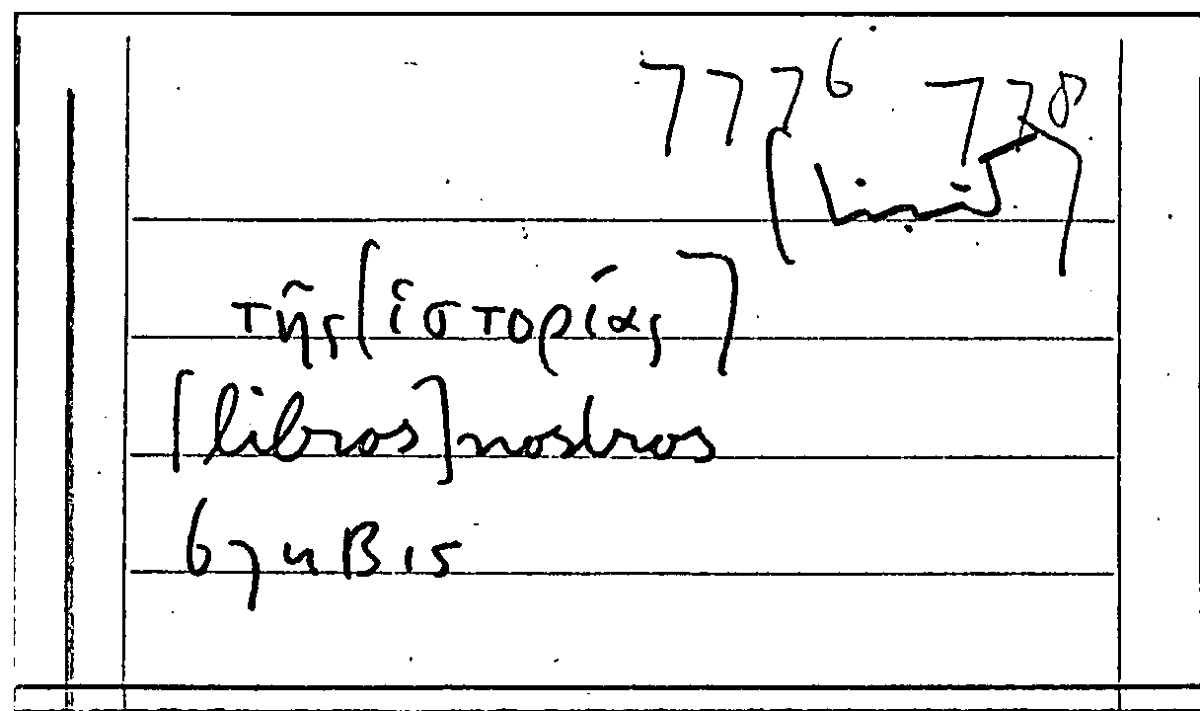 777⁶ 778
τῆς [ἱστορίας]
[libros] nostros
67u B15